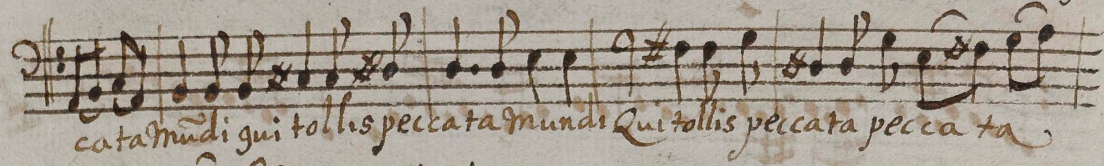 cata Mũdi qui tollis peccata mundi Qui tollis peccata pecca ta